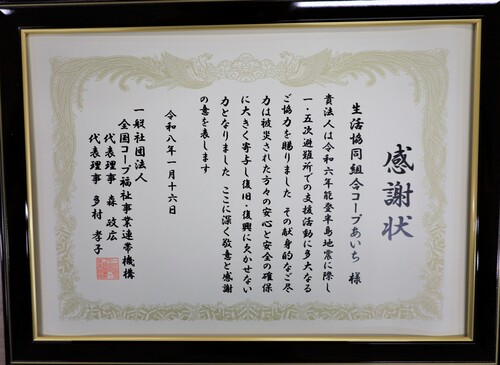 感謝状
生活協同組合コープあいち 様
貴法人は令和六年能登半島地震に際し
一・五次避難所での支援活動に多大なる
ご協力を賜りました その献身的なご尽
力は被災された方々の安心と安全の確保
に大きく寄与し復旧・復興に欠かせない
力となりました ここに深く敬意と感謝
の意を表します
令和八年一月十六日
一般社団法人
全国コープ福祉事業連帯機構
代表理事 森 政広
代表理事 多村 孝子